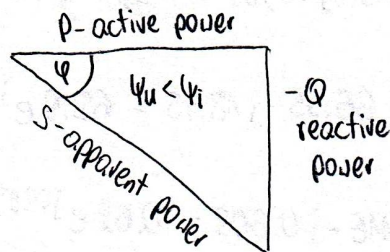 P-active power
φ
Ψu < Ψi
-Q
reactive
power
S-apparent power